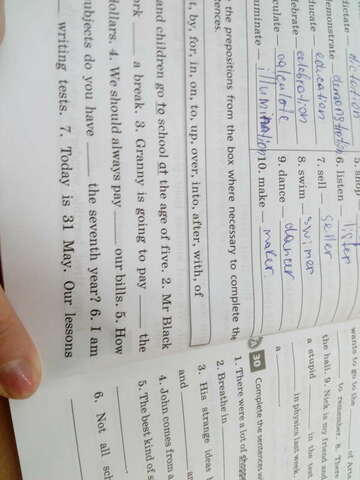 dictate —
demonstrate — demonstration
ducate — education
lebrate — celebration
culate — calculate
uminate — illumination
5. shop
6. listen — lister
7. sell — seller
8. swim — swimer
9. dance — dancer
10. make — maker
the prepositions from the box where necessary to complete the
tences.
t, by, for, in, on, to, up, over, into, after, with, of
and children go to school at the age of five. 2. Mr Black
ork ___ a break. 3. Granny is going to pay ___ the
dollars. 4. We should always pay ___ our bills. 5. How
ubjects do you have ___ the seventh year? 6. I am
___ writing tests. 7. Today is 31 May. Our lessons
of Arts
wants to go to the
to remember. 8. There
the hall. 9. Nick is my friend and
a stupid ___ in the test
___ in physics last week.
a
30 Complete the sentences
1. There were a lot of
2. Breathe in
3. His strange ideas
and
4. John comes from a
5. The best kind of s
6. Not all sch